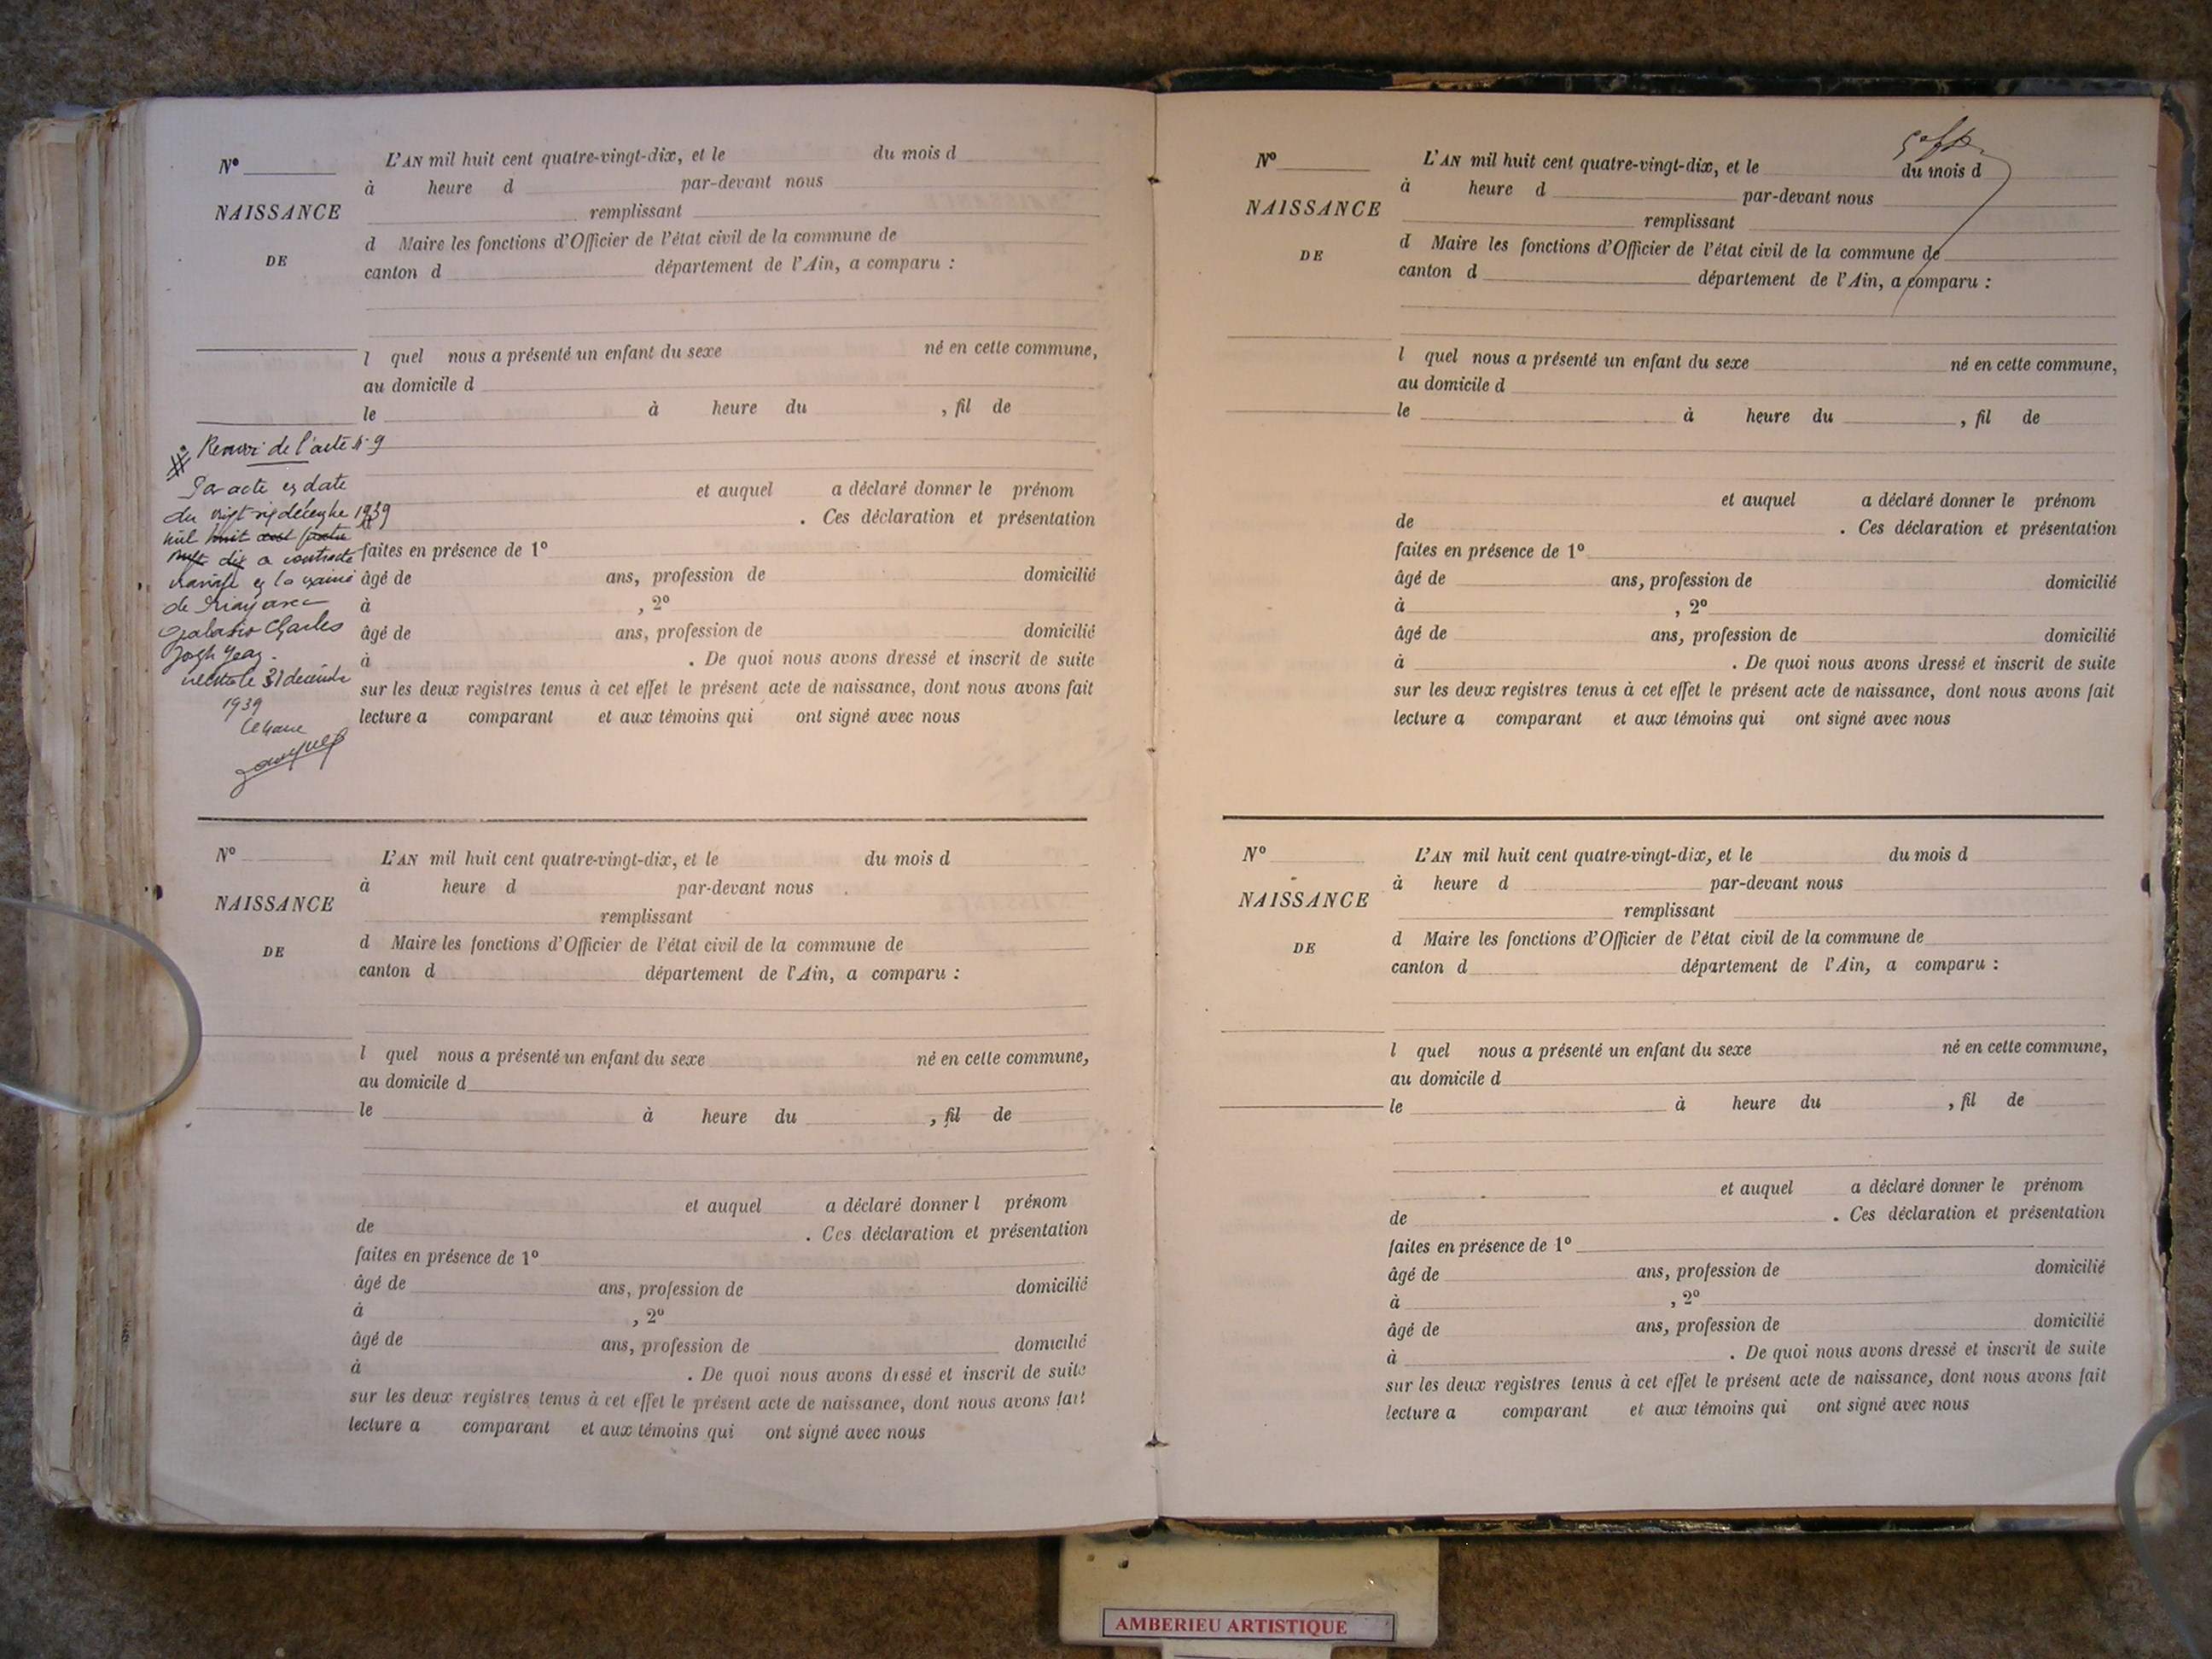 N°
NAISSANCE
DE
L'AN mil huit cent quatre-vingt-dix, et le du mois d
à heure d par-devant nous
remplissant
d Maire les fonctions d'Officier de l'état civil de la commune de
canton d département de l'Ain, a comparu :
l quel nous a présenté un enfant du sexe né en cette commune,
au domicile d
le à heure du , fil de
et auquel a déclaré donner le prénom
. Ces déclaration et présentation
faites en présence de 1º
âgé de ans, profession de domicilié
à , 2º
âgé de ans, profession de domicilié
à . De quoi nous avons dressé et inscrit de suite
sur les deux registres tenus à cet effet le présent acte de naissance, dont nous avons fait
lecture a comparant et aux témoins qui ont signé avec nous
Renvoi de l'acte N° 9
Par acte en date
du vingt six décembre 1939
mil huit cent
dix a contracté
mariage en la mairie
de
Charles
Joseph Jean
le 31 décembre
1939
Le Maire
N°
NAISSANCE
DE
L'AN mil huit cent quatre-vingt-dix, et le du mois d
à heure d par-devant nous
remplissant
d Maire les fonctions d'Officier de l'état civil de la commune de
canton d département de l'Ain, a comparu :
l quel nous a présenté un enfant du sexe né en cette commune,
au domicile d
le à heure du , fil de
et auquel a déclaré donner l prénom
de . Ces déclaration et présentation
faites en présence de 1º
âgé de ans, profession de domicilié
à , 2º
âgé de ans, profession de domicilié
à . De quoi nous avons dressé et inscrit de suite
sur les deux registres tenus à cet effet le présent acte de naissance, dont nous avons fait
lecture a comparant et aux témoins qui ont signé avec nous
N°
NAISSANCE
DE
L'AN mil huit cent quatre-vingt-dix, et le du mois d
à heure d par-devant nous
remplissant
d Maire les fonctions d'Officier de l'état civil de la commune de
canton d département de l'Ain, a comparu :
l quel nous a présenté un enfant du sexe né en cette commune,
au domicile d
le à heure du , fil de
et auquel a déclaré donner le prénom
de . Ces déclaration et présentation
faites en présence de 1º
âgé de ans, profession de domicilié
à , 2º
âgé de ans, profession de domicilié
à . De quoi nous avons dressé et inscrit de suite
sur les deux registres tenus à cet effet le présent acte de naissance, dont nous avons fait
lecture a comparant et aux témoins qui ont signé avec nous
N°
NAISSANCE
DE
L'AN mil huit cent quatre-vingt-dix, et le du mois d
à heure d par-devant nous
remplissant
d Maire les fonctions d'Officier de l'état civil de la commune de
canton d département de l'Ain, a comparu :
l quel nous a présenté un enfant du sexe né en cette commune,
au domicile d
le à heure du , fil de
et auquel a déclaré donner le prénom
de . Ces déclaration et présentation
faites en présence de 1º
âgé de ans, profession de domicilié
à , 2º
âgé de ans, profession de domicilié
à . De quoi nous avons dressé et inscrit de suite
sur les deux registres tenus à cet effet le présent acte de naissance, dont nous avons fait
lecture a comparant et aux témoins qui ont signé avec nous
AMBERIEU ARTISTIQUE